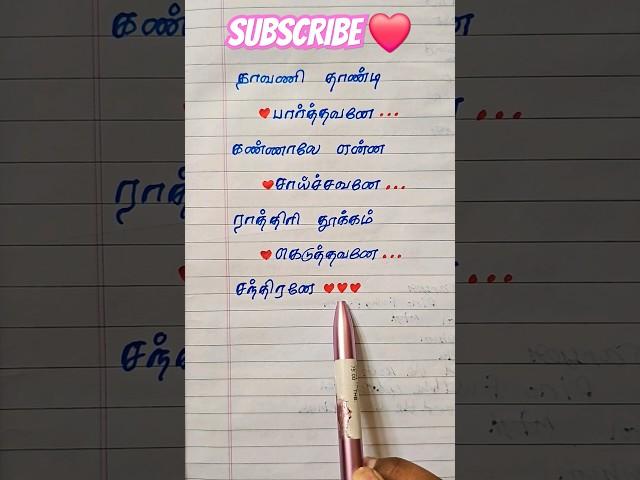 SUBSCRIBE
தாவணி தாண்டி
பார்த்தவனே...
கண்ணாலே என்ன
சாய்ச்சவனே...
ராத்திரி தூக்கம்
கெடுத்தவனே...
சந்திரனே